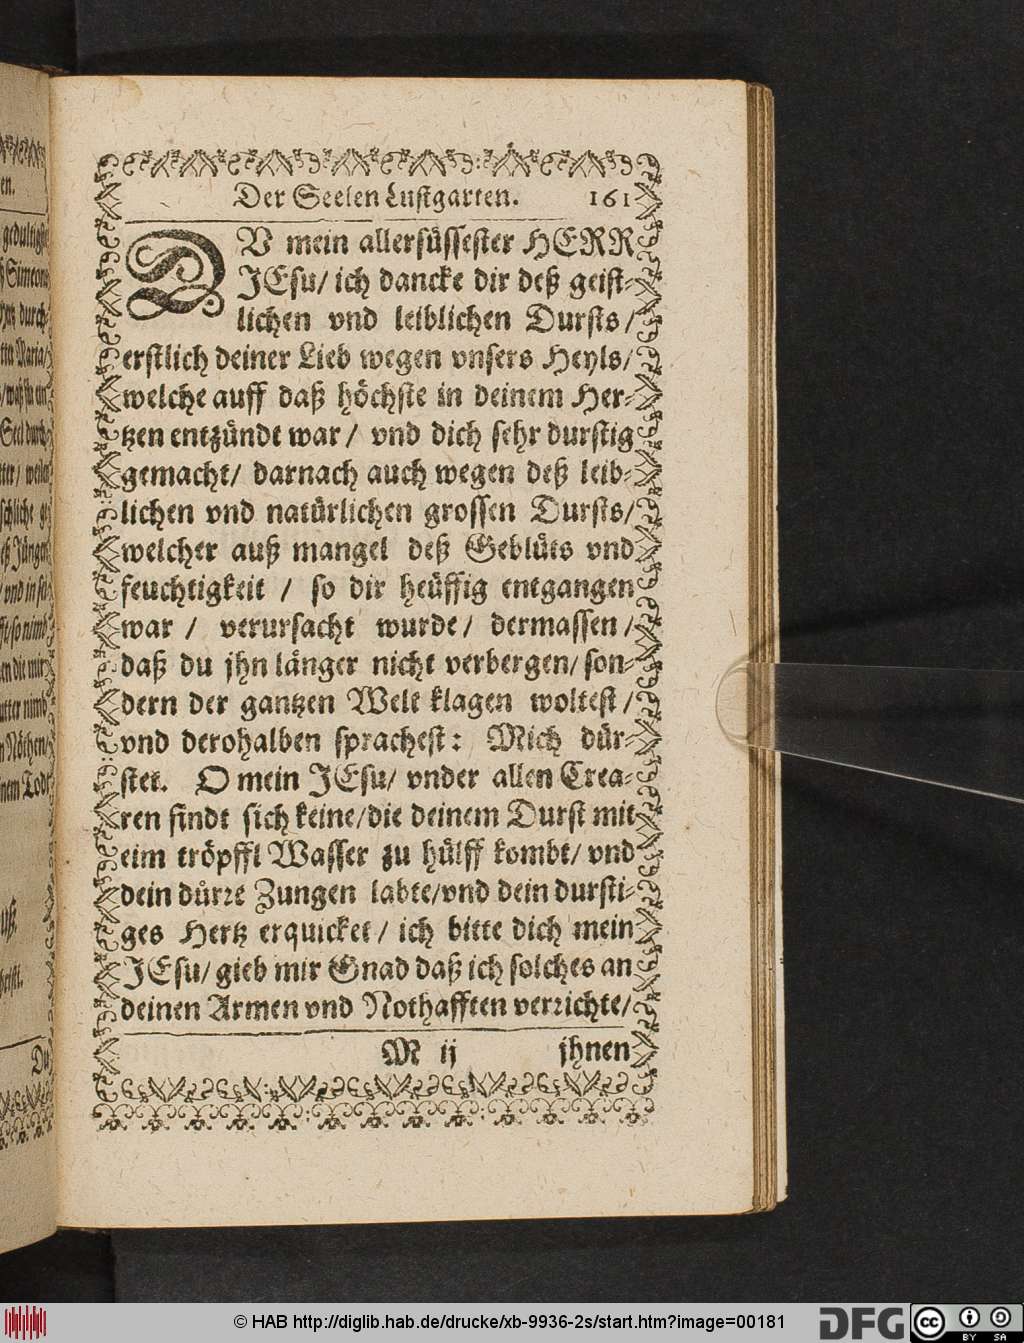 Der Seelen Lustgarten. 161
DV mein allersüssester HERR
JEsu/ ich dancke dir deß geist-
lichen vnd leiblichen Dursts/
erstlich deiner Lieb wegen vnsers Heyls/
welche auff daß höchste in deinem Her-
tzen entzündt war/ vnd dich sehr durstig
gemacht/ darnach auch wegen deß leib-
lichen vnd natürlichen grossen Dursts/
welcher auß mangel deß Geblüts vnd
feuchtigkeit / so dir heüffig entgangen
war / verursacht wurde/ dermassen/
daß du jhn länger nicht verbergen/ son-
dern der gantzen Welt klagen woltest/
vnd derohalben sprachest: Mich dür-
stet. O mein JEsu/ vnder allen Crea-
ren findt sich keine/die deinem Durst mit
eim tröpffl Wasser zu hülff kombt/ vnd
dein dürre Zungen labte/vnd dein dursti-
ges Hertz erquicket/ ich bitte dich mein
JEsu/ gieb mir Gnad daß ich solches an
deinen Armen vnd Nothafften verrichte/
M ij jhnen
en.
gedultigste
Simeons
durch-
Maria/
Seel durch-
Jünger
vnd in sei-
so nimb
die mir
nimb
Nöthen/
Todt
Du
© HAB http://diglib.hab.de/drucke/xb-9936-2s/start.htm?image=00181
DFG
cc BY SA